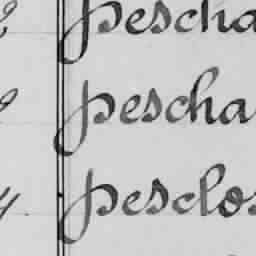 pescha
pescha
pesclos